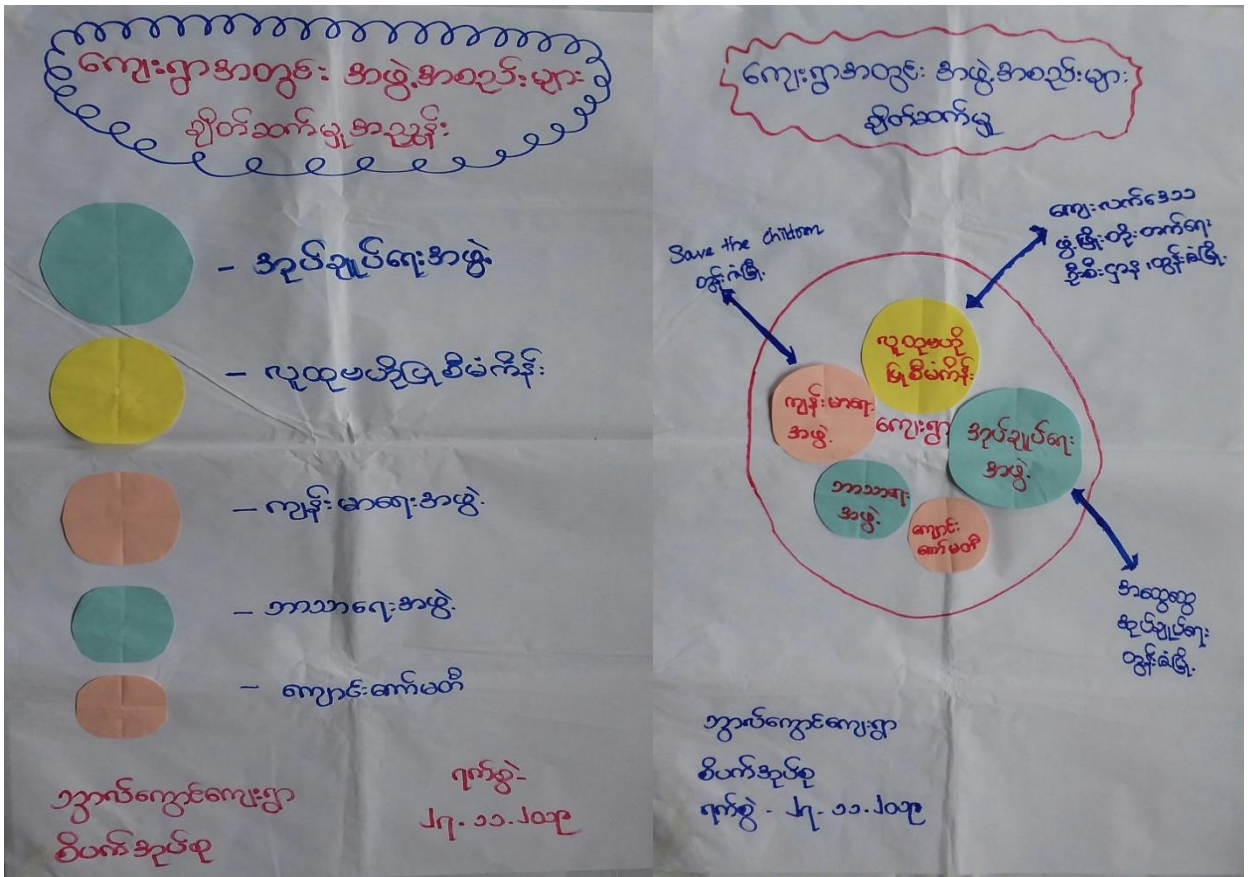 ကျေးရွာအတွင်း အဖွဲ့အစည်းများ
ချိတ်ဆက်မှုအညွှန်း
- အုပ်ချုပ်ရေးအဖွဲ့
- လူထုဗဟိုပြုစီမံကိန်း
- ကျန်းမာရေးအဖွဲ့
- ဘာသာရေးအဖွဲ့
- ကျောင်းကော်မတီ
ကျေးရွာ
စီပက်အုပ်စု
ရက်စွဲ-
၂၇.၁၁.၂၀၁၉
ကျေးရွာအတွင်း အဖွဲ့အစည်းများ
ချိတ်ဆက်မှု
Save the Children
တွန်းဇံမြို့
ကျေးလက်ဒေသ
ဖွံ့ဖြိုးတိုးတက်ရေး
ဦးစီးဌာန၊ တွန်းဇံမြို့
လူထုဗဟို
ပြုစီမံကိန်း
ကျန်းမာရေး
အဖွဲ့
ကျေးရွာ
အုပ်ချုပ်ရေး
အဖွဲ့
ဘာသာရေး
အဖွဲ့
ကျောင်း
ကော်မတီ
အထွေထွေ
အုပ်ချုပ်ရေး
တွန်းဇံမြို့
ကျေးရွာ
စီပက်အုပ်စု
ရက်စွဲ - ၂၇.၁၁.၂၀၁၉